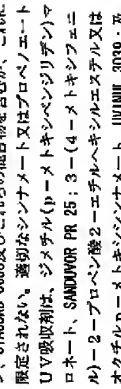 限定されない。適切なシンナメート又はプロペノエート
UV吸収剤は、ジメチル(p-メトキシベンジリデン)マ
ロネート、SANDUVOR PR 25；3-(4-メトキシフェニ
ル)-2-プロペン酸2-エチルヘキシルエステル又は
オクチルp-メトキシシンナメート、UVINUL 3039；及